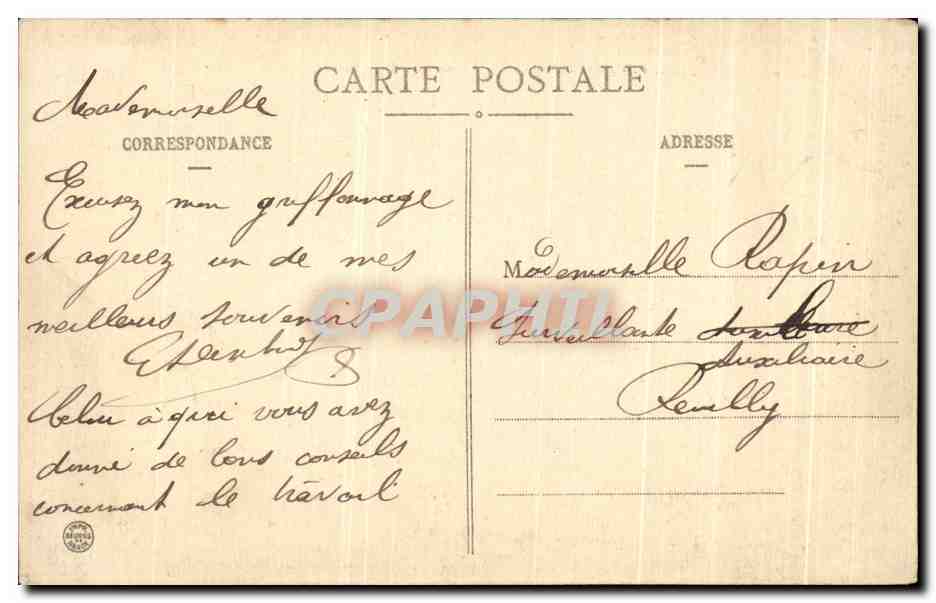 CARTE POSTALE
Mademoiselle
CORRESPONDANCE
Excusez mon griffonnage
et agréez un de mes
meilleurs souvenirs
Celui à qui vous avez
donné de bons conseils
concernant le travail
ADRESSE
Mademoiselle Rapin
Surveillante
Auxiliaire
Reuilly
CPAPHIL